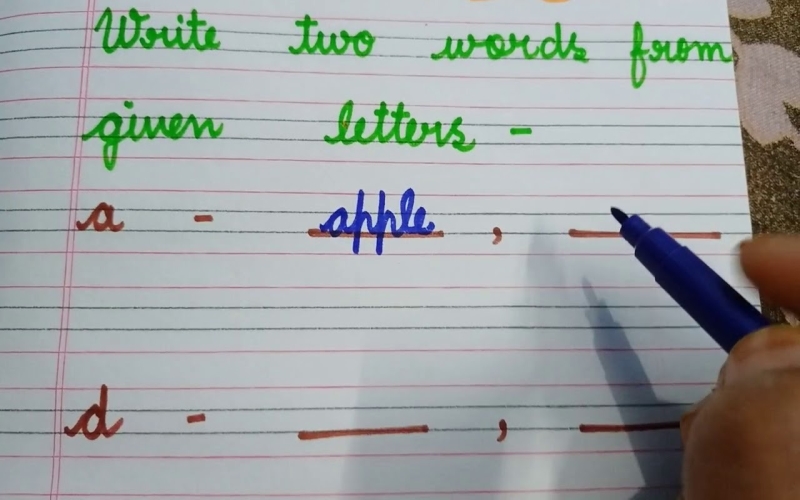 Write two words from
given letters -
a - apple ,
d - ,